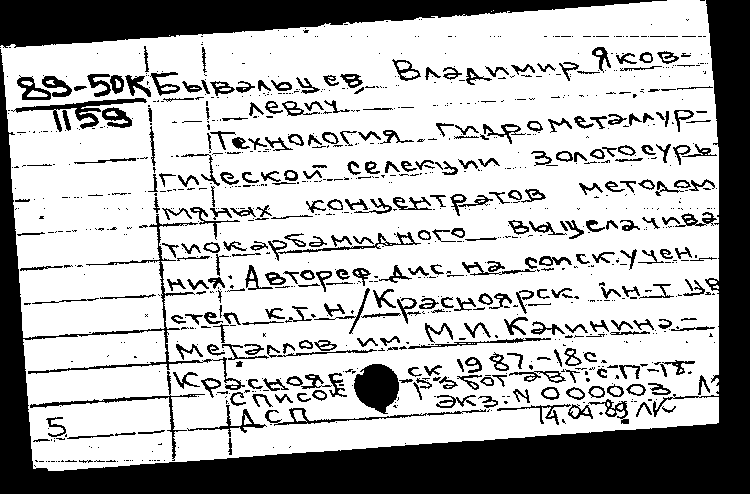 89-50К Бывальцев Владимир Яков-
1159 левич
Технология гидрометаллур-
гической селекции золотосурь
мяных концентратов методом
тиокарбамидного выщелачива
ния: Автореф. дис. на соиск. учен.
степ к.т.н. / Красноярск. ин-т цв
металлов им. М.И. Калинина.-
Краснояр ск 1987.-18с.
список работ авт.: с.17-18.
5 ДСП экз. N 000003
14.04.89 ЛК